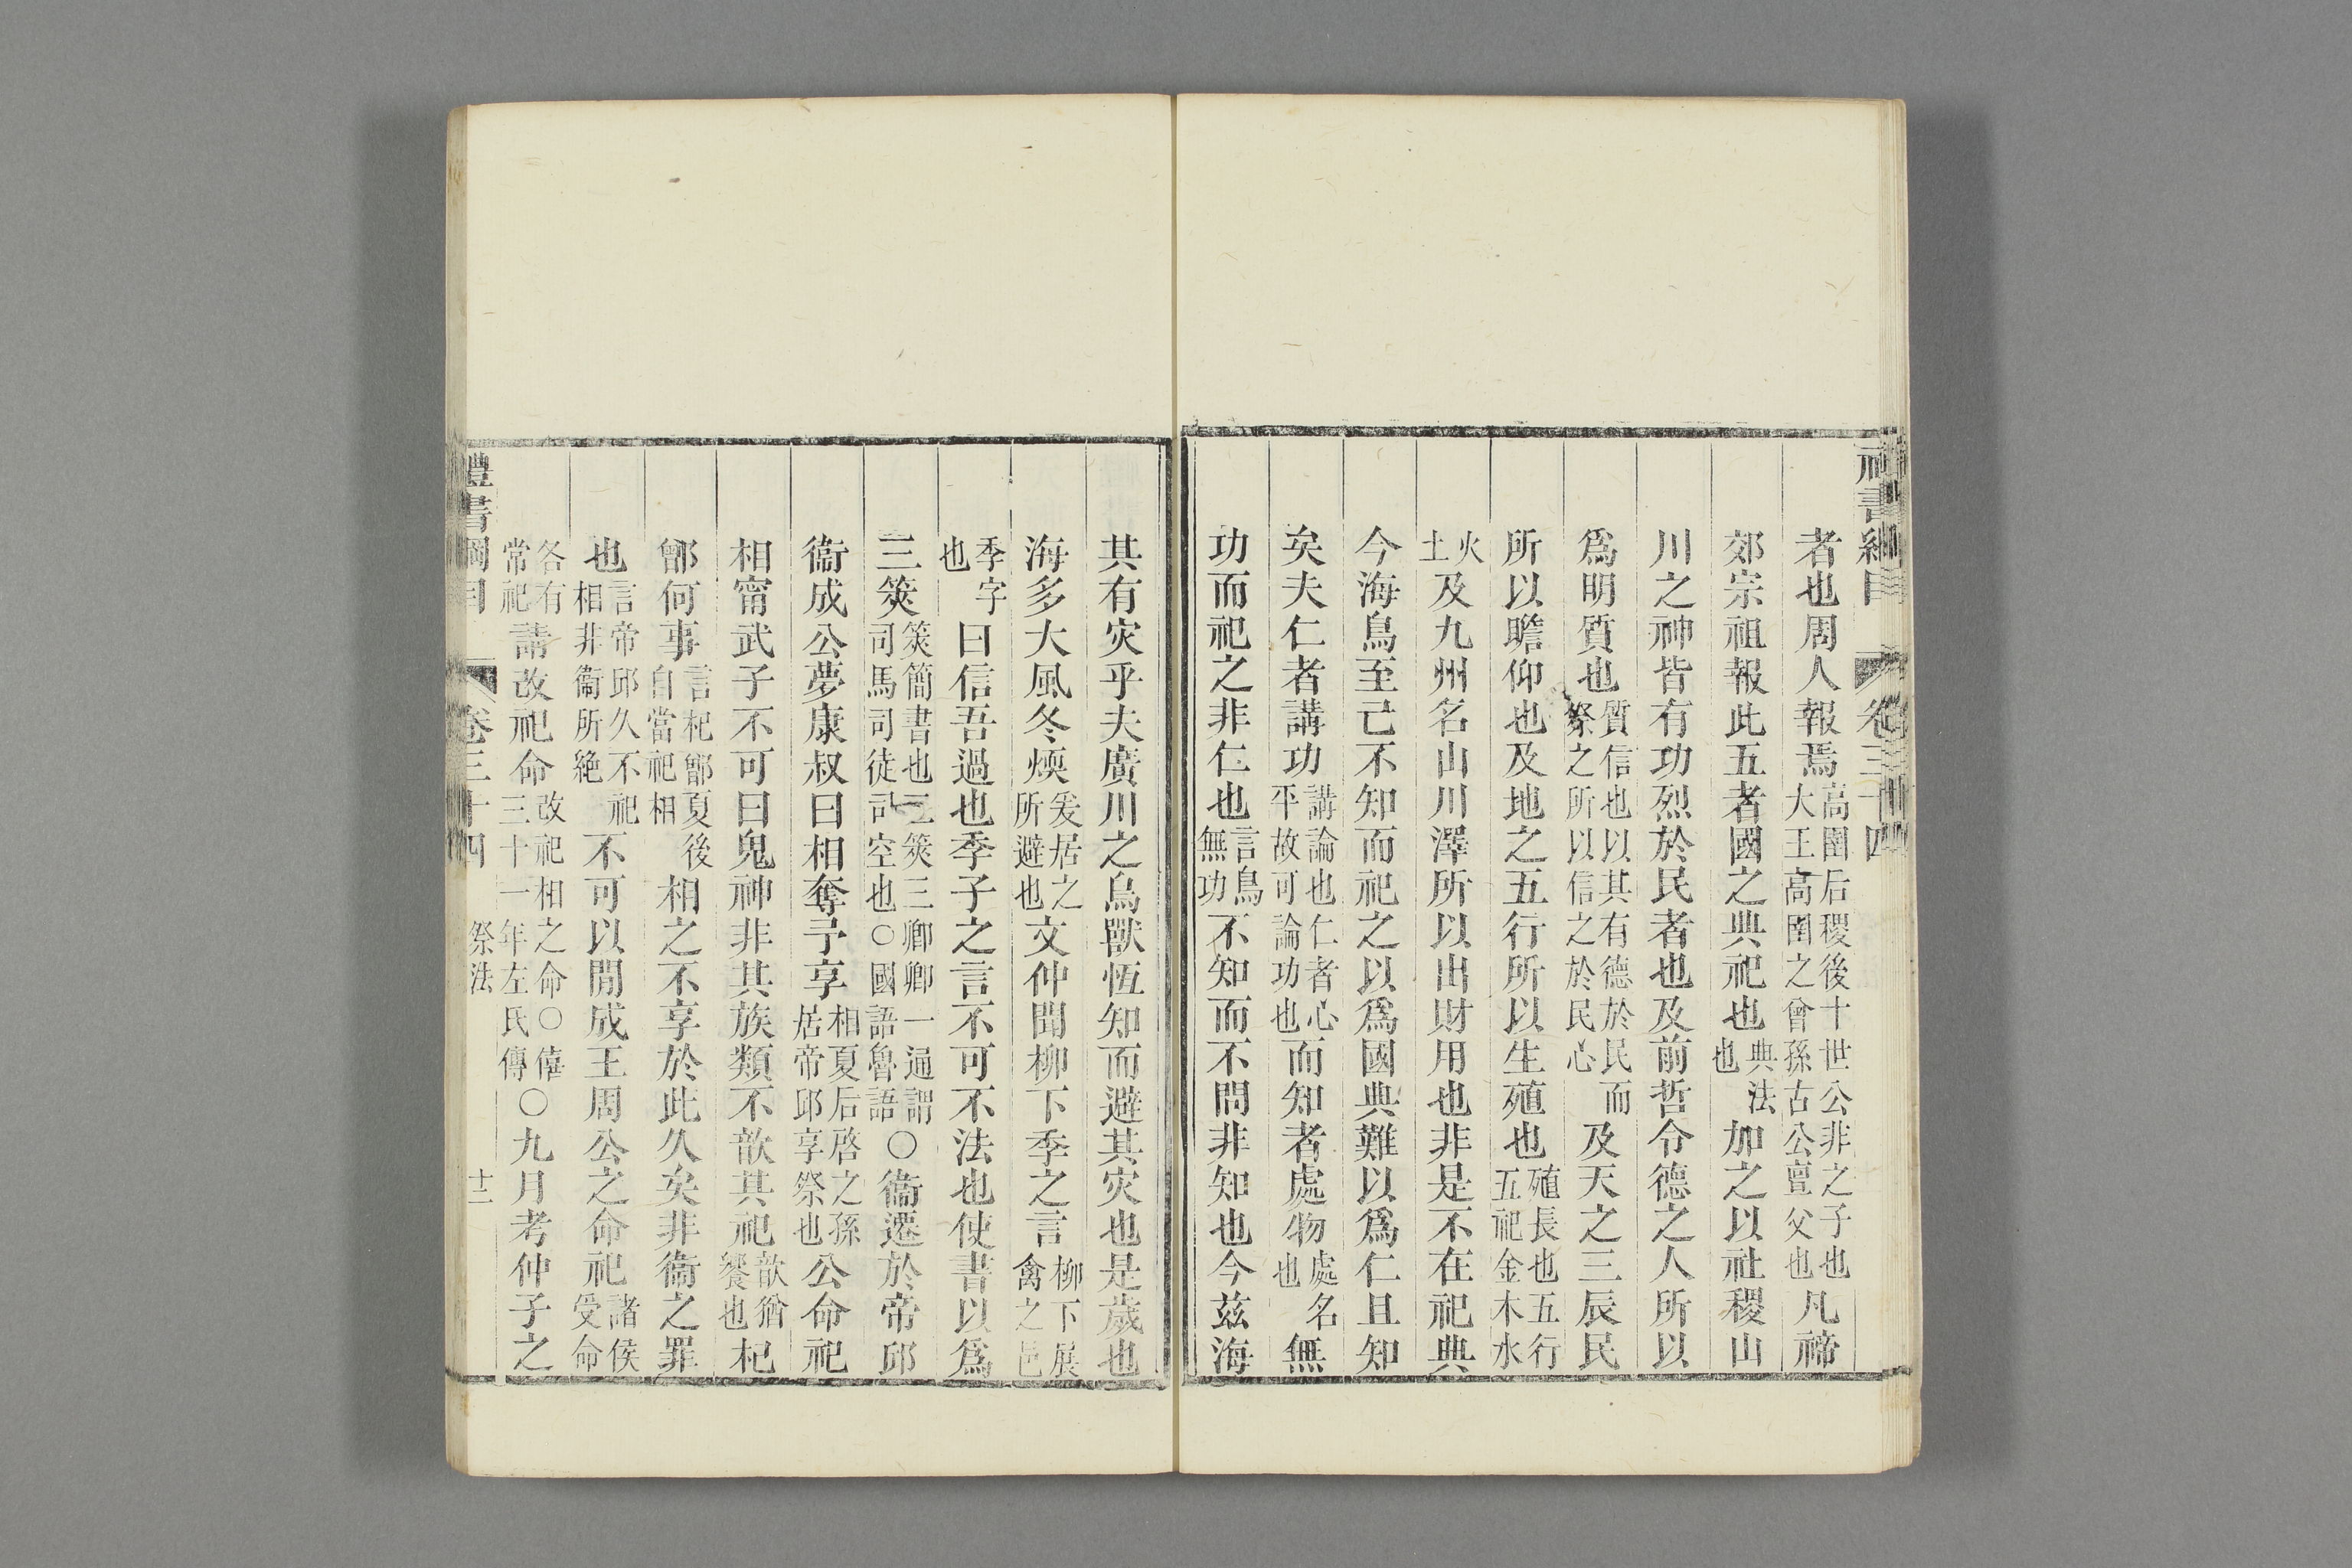 禮書綱目 卷三十四
者也周人報焉高圉后稷後十世公非之子也大王高圉之曾孫古公亶父也凡禘
郊宗祖報此五者國之典祀也典法也加之以社稷山
川之神皆有功烈於民者也及前哲令德之人所以
爲明質也質信也以其有德於民而祭之所以信之於民心及天之三辰民
所以瞻仰也及地之五行所以生殖也殖長也五行五祀金木水
火土及九州名山川澤所以出財用也非是不在祀典
今海鳥至己不知而祀之以爲國典難以爲仁且知
矣夫仁者講功講論也仁者心平故可論功也而知者處物處名也無
功而祀之非仁也言鳥無功不知而不問非知也今茲海
其有灾乎夫廣川之鳥獸恆知而避其灾也是歲也
海多大風冬煗爰居之所避也文仲聞柳下季之言柳下展禽之邑
季字也曰信吾過也季子之言不可不法也使書以爲
三筴筴簡書也三筴三卿卿一通謂司馬司徒司空也○國語魯語○衞遷於帝邱
衞成公夢康叔曰相奪予享相夏后啓之孫居帝邱享祭也公命祀
相甯武子不可曰鬼神非其族類不歆其祀歆猶饗也杞
鄫何事言杞鄫夏後自當祀相相之不享於此久矣非衞之罪
也言帝邱久不祀相非衞所絶不可以閒成王周公之命祀諸侯受命
各有常祀請改祀命改祀相之命○僖三十一年左氏傳○九月考仲子之
禮書綱目 卷三十四 祭法 十二